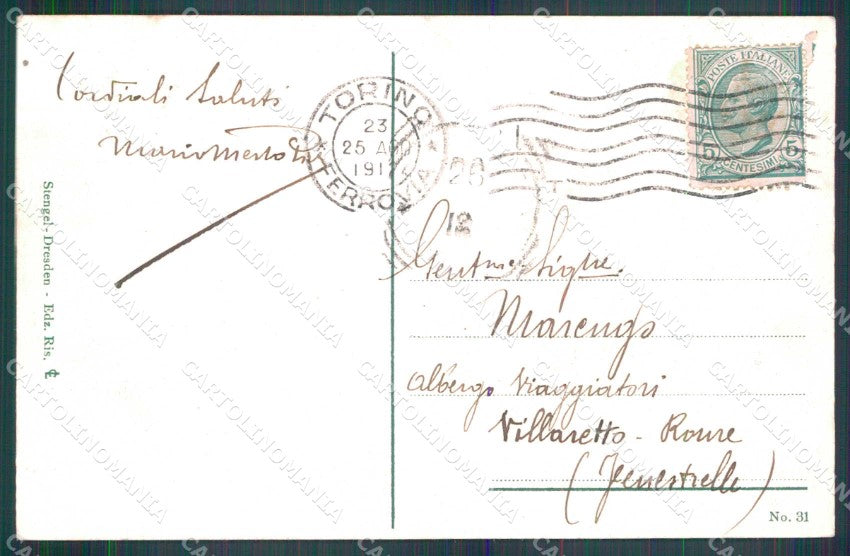 Cordiali Saluti
Mario
TORINO
23
25 AGO
191
FERROVIA
26
12
POSTE ITALIANE
5 CENTESIMI 5
Gent.me Sigre.
Marengo
Albergo Viaggiatori
Villaretto - Roure
(Fenestrelle)
Stengel - Dresden - Edz. Ris.
No. 31
CARTOLINOMANIA